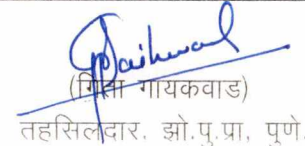 (गिता गायकवाड)
तहसिलदार. झो.पु.प्रा, पुणे.